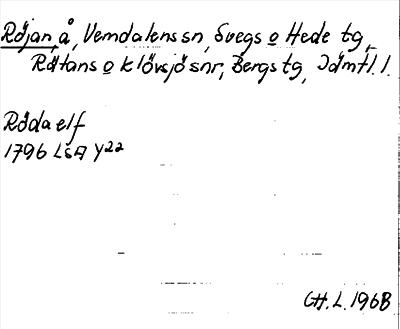 Röjan, å, Vemdalens sn, Svegs o Hede tg,
Rätans o Klövsjö snr, Bergs tg, Jämtl. l.
Röda elf
1796 LSA Y22
CH.L. 1968